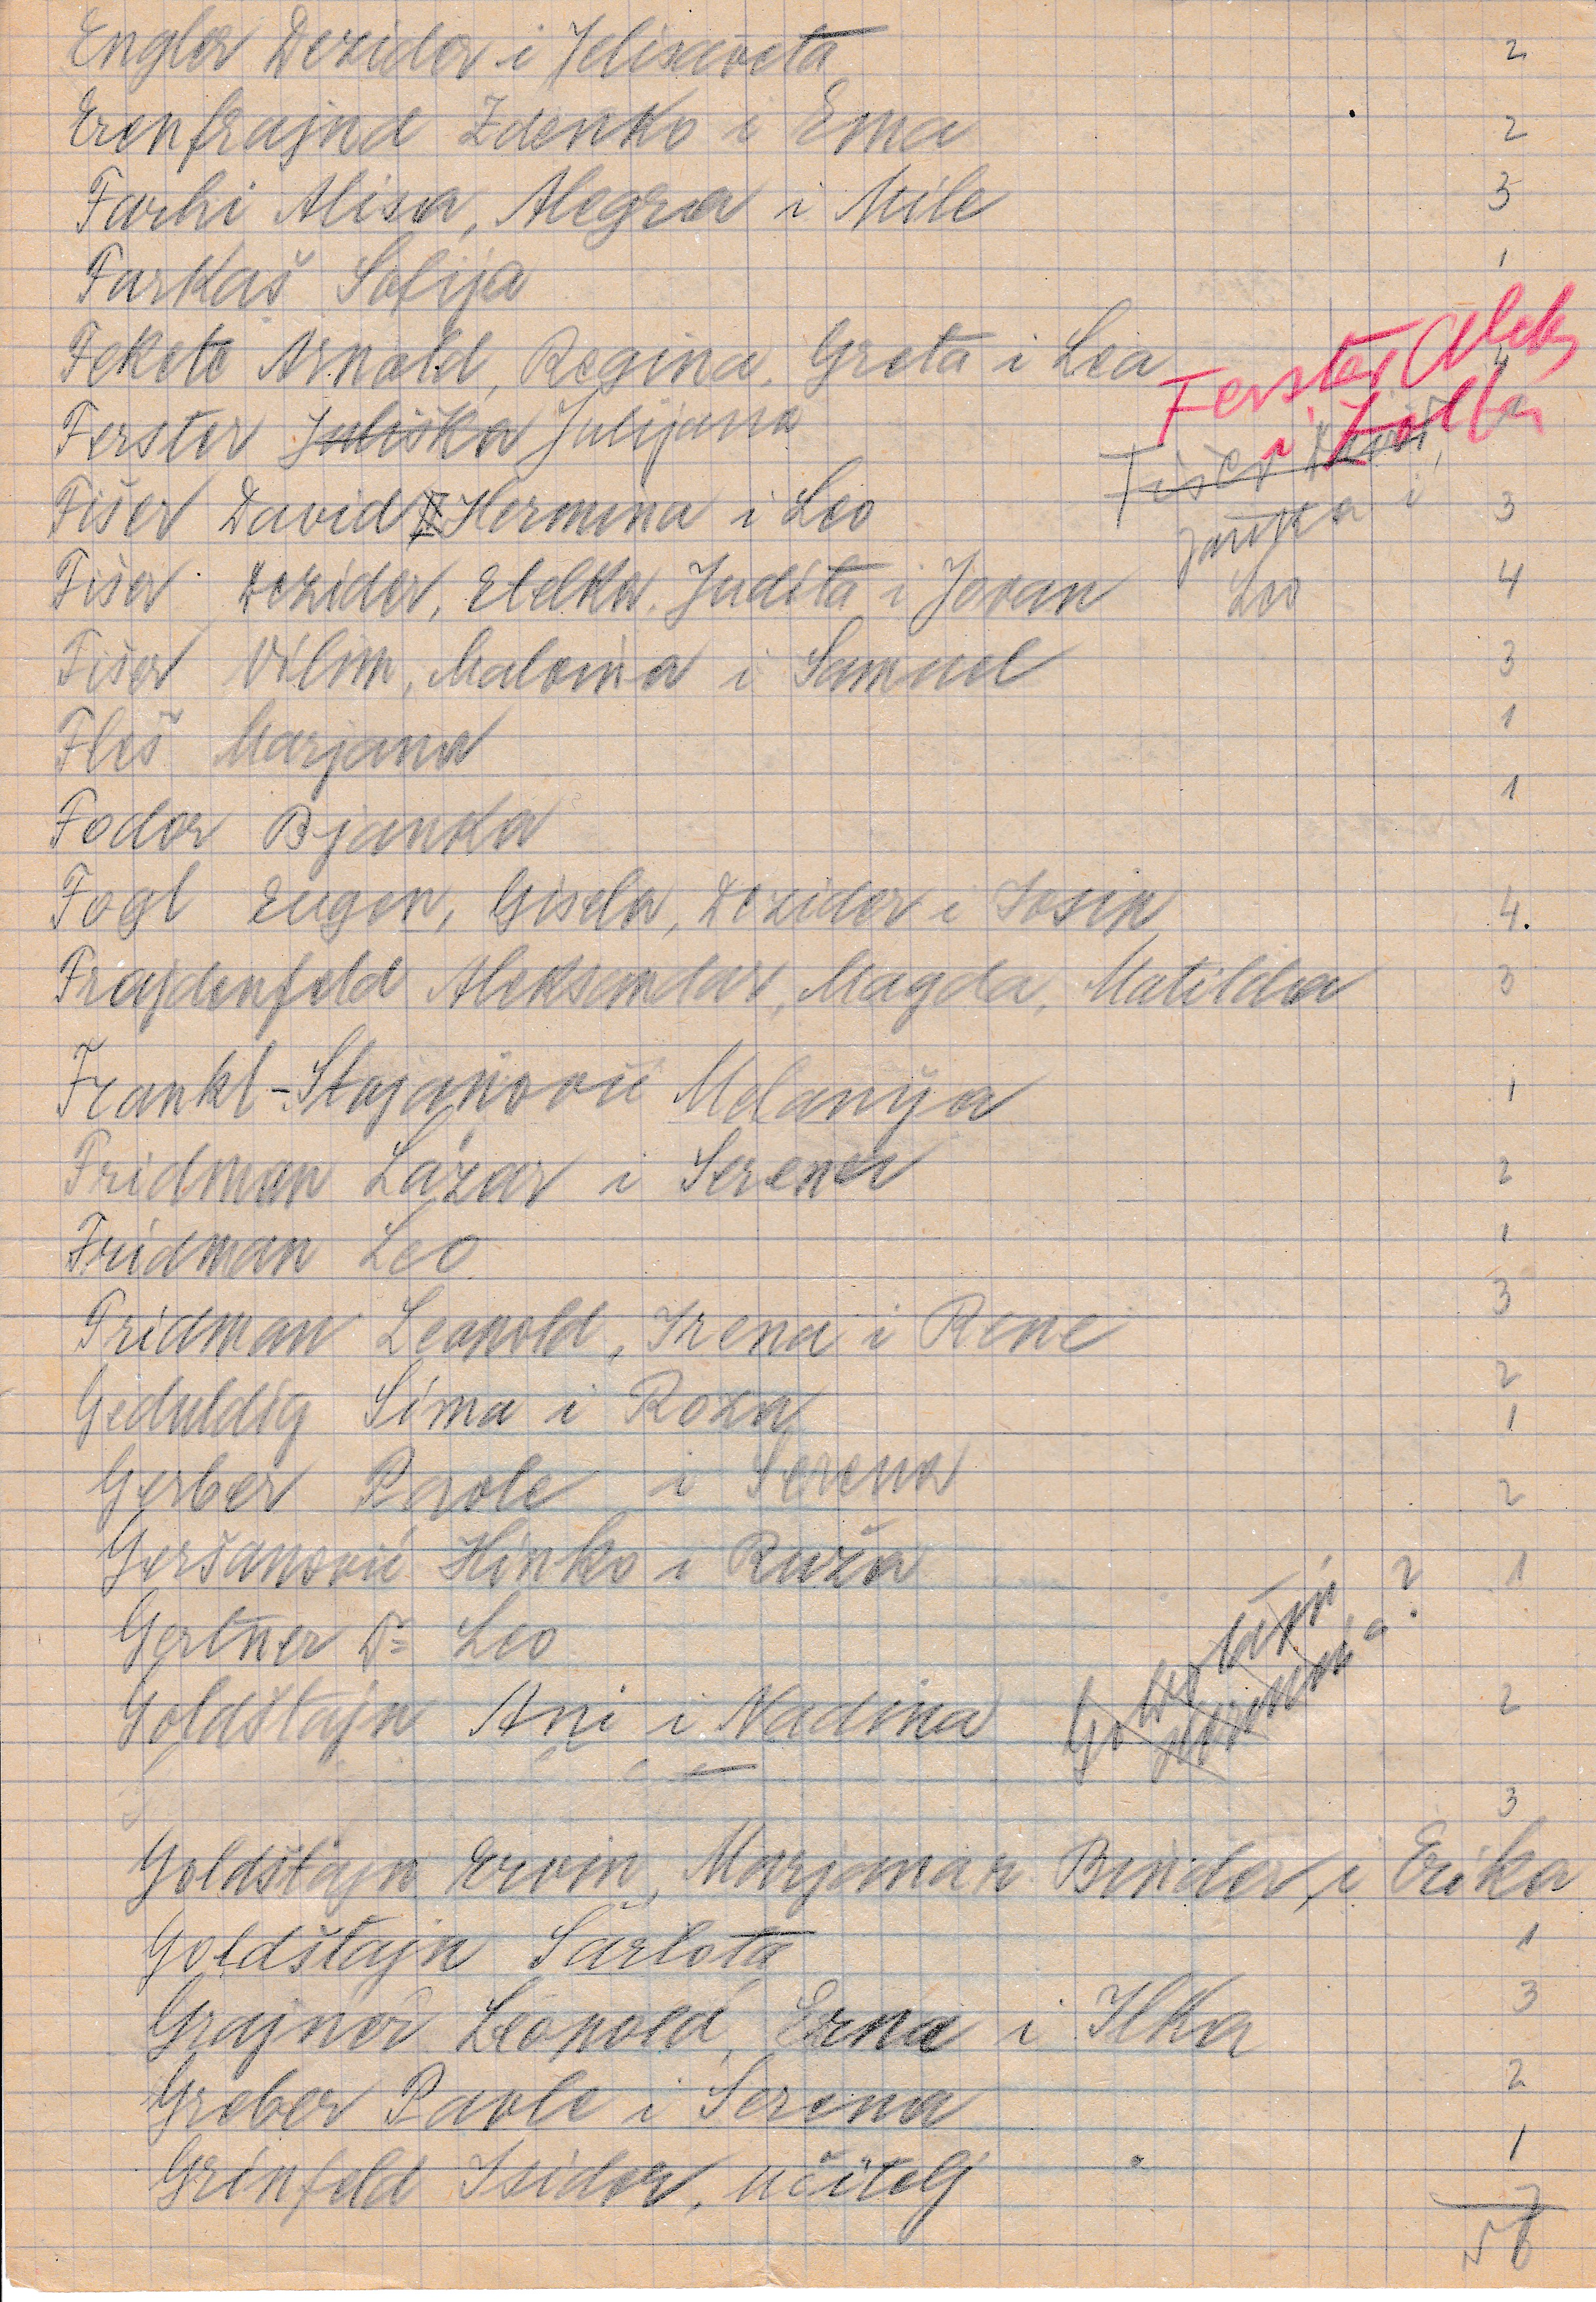 Engler Dezider i Jelisaveta 2
Erenfrajnd Zdenko i Ema 2
Farhi Alisa, Alegra i Mile 3
Farkaš Sofija 1
Fekete Arnold, Regina, Greta i Lea 4
Ferster Aleks
i
Ferster Juliška Julijana
Fišer
Fišer David Hermina i Leo 3
Jariška i
Leo
Fišer Dezider, Etelka, Judita i Jovan 4
Fišer Vilim, Malvina i Samuel 3
Fleš Marjana 1
Fodor Bjanka 1
Fogl Eugen, Gisela, Dezider i 4.
Frajdenfeld Aleksandar, Magda, Matilda 3
Frankl-Stojanović Melanija 1
Fridman Lazar i Serena 2
Fridman Leo 1
Fridman Leopold, Irena i Rene 3
Geduldig Sima i Roza 2
1
Gerber Pavle i Serena 2
Geršanović Hinko i Ruža 1
Gertner Dr Leo
?
Goldštajn Ani i Nadina 2
3
Goldštajn Ervin, Marjana r. Binder, i Erika
Goldštajn Šarlota 1
Grajner Leopold, Erna i Ilka 3
Greber Pavle i Serena 2
Grinfeld Isidor, učitelj 1